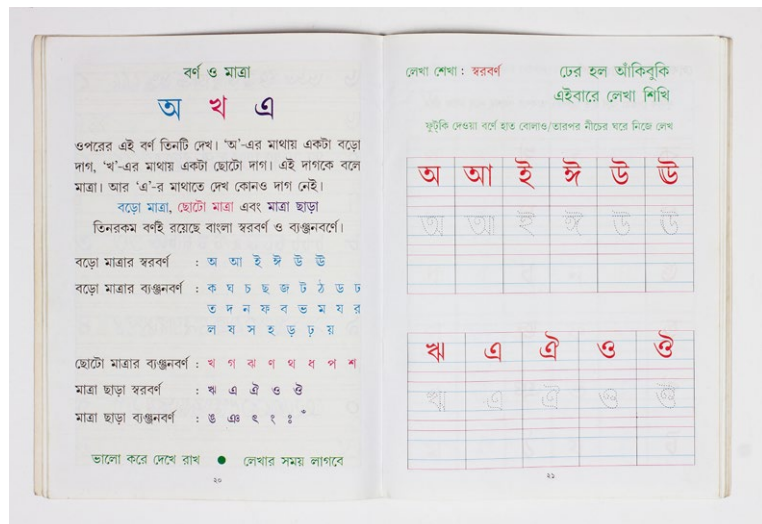 বর্ণ ও মাত্রা
অ খ এ
ওপরের এই বর্ণ তিনটি দেখ। ‘অ’-এর মাথায় একটা বড়ো
দাগ, ‘খ’-এর মাথায় একটা ছোটো দাগ। এই দাগকে বলে
মাত্রা। আর ‘এ’-র মাথাতে দেখ কোনও দাগ নেই।
বড়ো মাত্রা, ছোটো মাত্রা এবং মাত্রা ছাড়া
তিনরকম বর্ণই রয়েছে বাংলা স্বরবর্ণ ও ব্যঞ্জনবর্ণে।
বড়ো মাত্রার স্বরবর্ণ : অ আ ই ঈ উ ঊ
বড়ো মাত্রার ব্যঞ্জনবর্ণ : ক ঘ চ ছ জ ট ঠ ড ঢ
ত দ ন ফ ব ভ ম য র
ল ষ স হ ড় ঢ় য়
ছোটো মাত্রার ব্যঞ্জনবর্ণ : খ গ ঝ ণ থ ধ প শ
মাত্রা ছাড়া স্বরবর্ণ : ঋ এ ঐ ও ঔ
মাত্রা ছাড়া ব্যঞ্জনবর্ণ : ঙ ঞ ৎ ং ঃ ঁ
ভালো করে দেখে রাখ ● লেখার সময় লাগবে
২০
লেখা শেখা : স্বরবর্ণ
ঢের হল আঁকিবুকি
এইবারে লেখা শিখি
ফুট্‌কি দেওয়া বর্ণে হাত বোলাও/তারপর নীচের ঘরে নিজে লেখ
অ আ ই ঈ উ ঊ
অ আ ই ঈ উ ঊ
ঋ এ ঐ ও ঔ
ঋ এ ঐ ও ঔ
২১